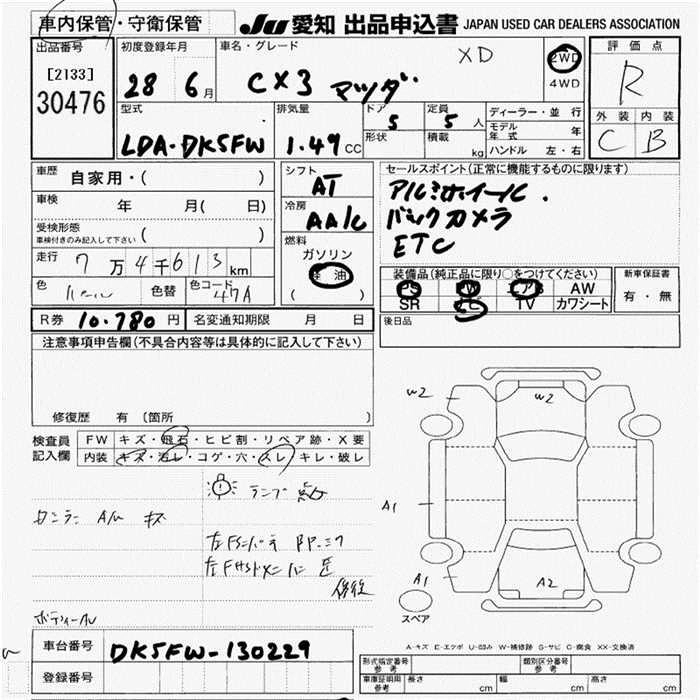 車内保管・守衛保管
JU 愛知 出品申込書 JAPAN USED CAR DEALERS ASSOCIATION
出品番号
[2133]
30476
初度登録年月
28 6月
車名・グレード
XD
CX3 マツダ
2WD
4WD
評価点
R
外装 内装
C B
型式
LDA-DK5FW
排気量
1.49 CC
ドア
5
形状
定員
5 人
積載
kg
ディーラー・並行
モデル年式 年
ハンドル 左・右
車歴
自家用・( )
車検
年 月( 日)
受検形態
車検付きのみ記入して下さい ( )
走行 7万4千613km
色 パール 色替 色コード 47A
シフト
AT
冷房
AA/C
燃料
ガソリン
軽油
( )
セールスポイント(正常に機能するものに限ります)
アルミホイール.
バックカメラ
ETC
装備品(純正品に限り○をつけてください)
PS PW エアB AW
SR ナビ TV カワシート
新車保証書
有・無
R券 10.780 円 名変通知期限 月 日
後日品
注意事項申告欄(不具合内容等は具体的に記入して下さい)
修復歴 有 〔箇所 〕
検査員
記入欄
FW キズ・飛石・ヒビ割・リペア跡・X要
内装 キズ・汚レ・コゲ・穴・スレ・キレ・破レ
ランプ
A/W キズ
W2
W2
A1
A1
A2
スペア
A-キズ E-エクボ U-凹み W-補修跡 S-サビ C-腐食 XX-交換済
車台番号 DK5FW-130229
登録番号
形式指定番号
参考
類別区分番号
参考
車庫証明用
参考
長さ cm 幅 cm 高さ cm